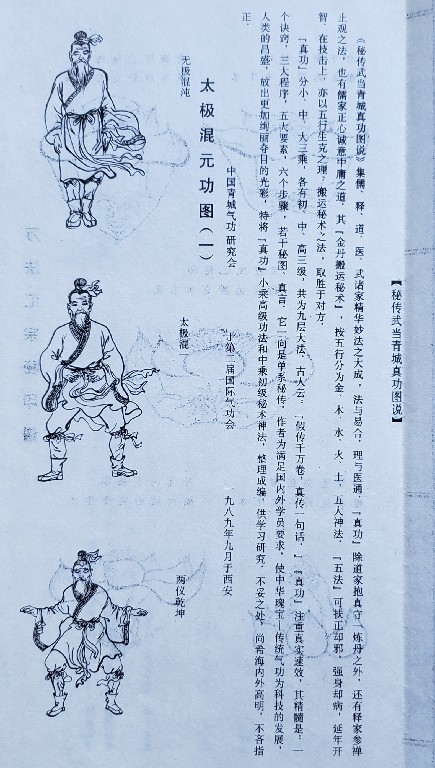 【秘传武当青城真功图说】
《秘传武当青城真功图说》集儒、释、道、医、武诸家精华妙法之大成，法与易合，理与医通，「真功」除道家抱真守一炼丹之外，还有释家参禅
止观之法，也有儒家正心诚意中庸之道，其『金丹搬运秘术』，按五行分为金、木、水、火、土，五人神法，『五法』可扶正却邪，强身却病，延年开
智，在技击上，亦以五行生克之理，搬运秘术之法，取胜于对方．
「真功」分小、中、大三乘，各有初、中、高三级，共为九层大法，古人云：『假传千万卷，真传一句话．』『真功』注重真实速效，其精髓是：一
个诀窍，三大程序，五大要素，六个步骤，若干秘图、真言，它一向是单系秘传，作者为满足国内外学员要求，使中华瑰宝—传统气功为科技的发展，
人类的昌盛，放出更加绚丽夺目的光彩，特将『真功』小乘高级功法和中乘初级秘术神法，整理成编，供学习研究，不妥之处，尚希海内外高明，不吝指
正．
中国青城气功研究会
于第 届国际气功会
一九八九年九月于西安
太极混元功图（一）
无极混沌
太极混
两仪乾坤